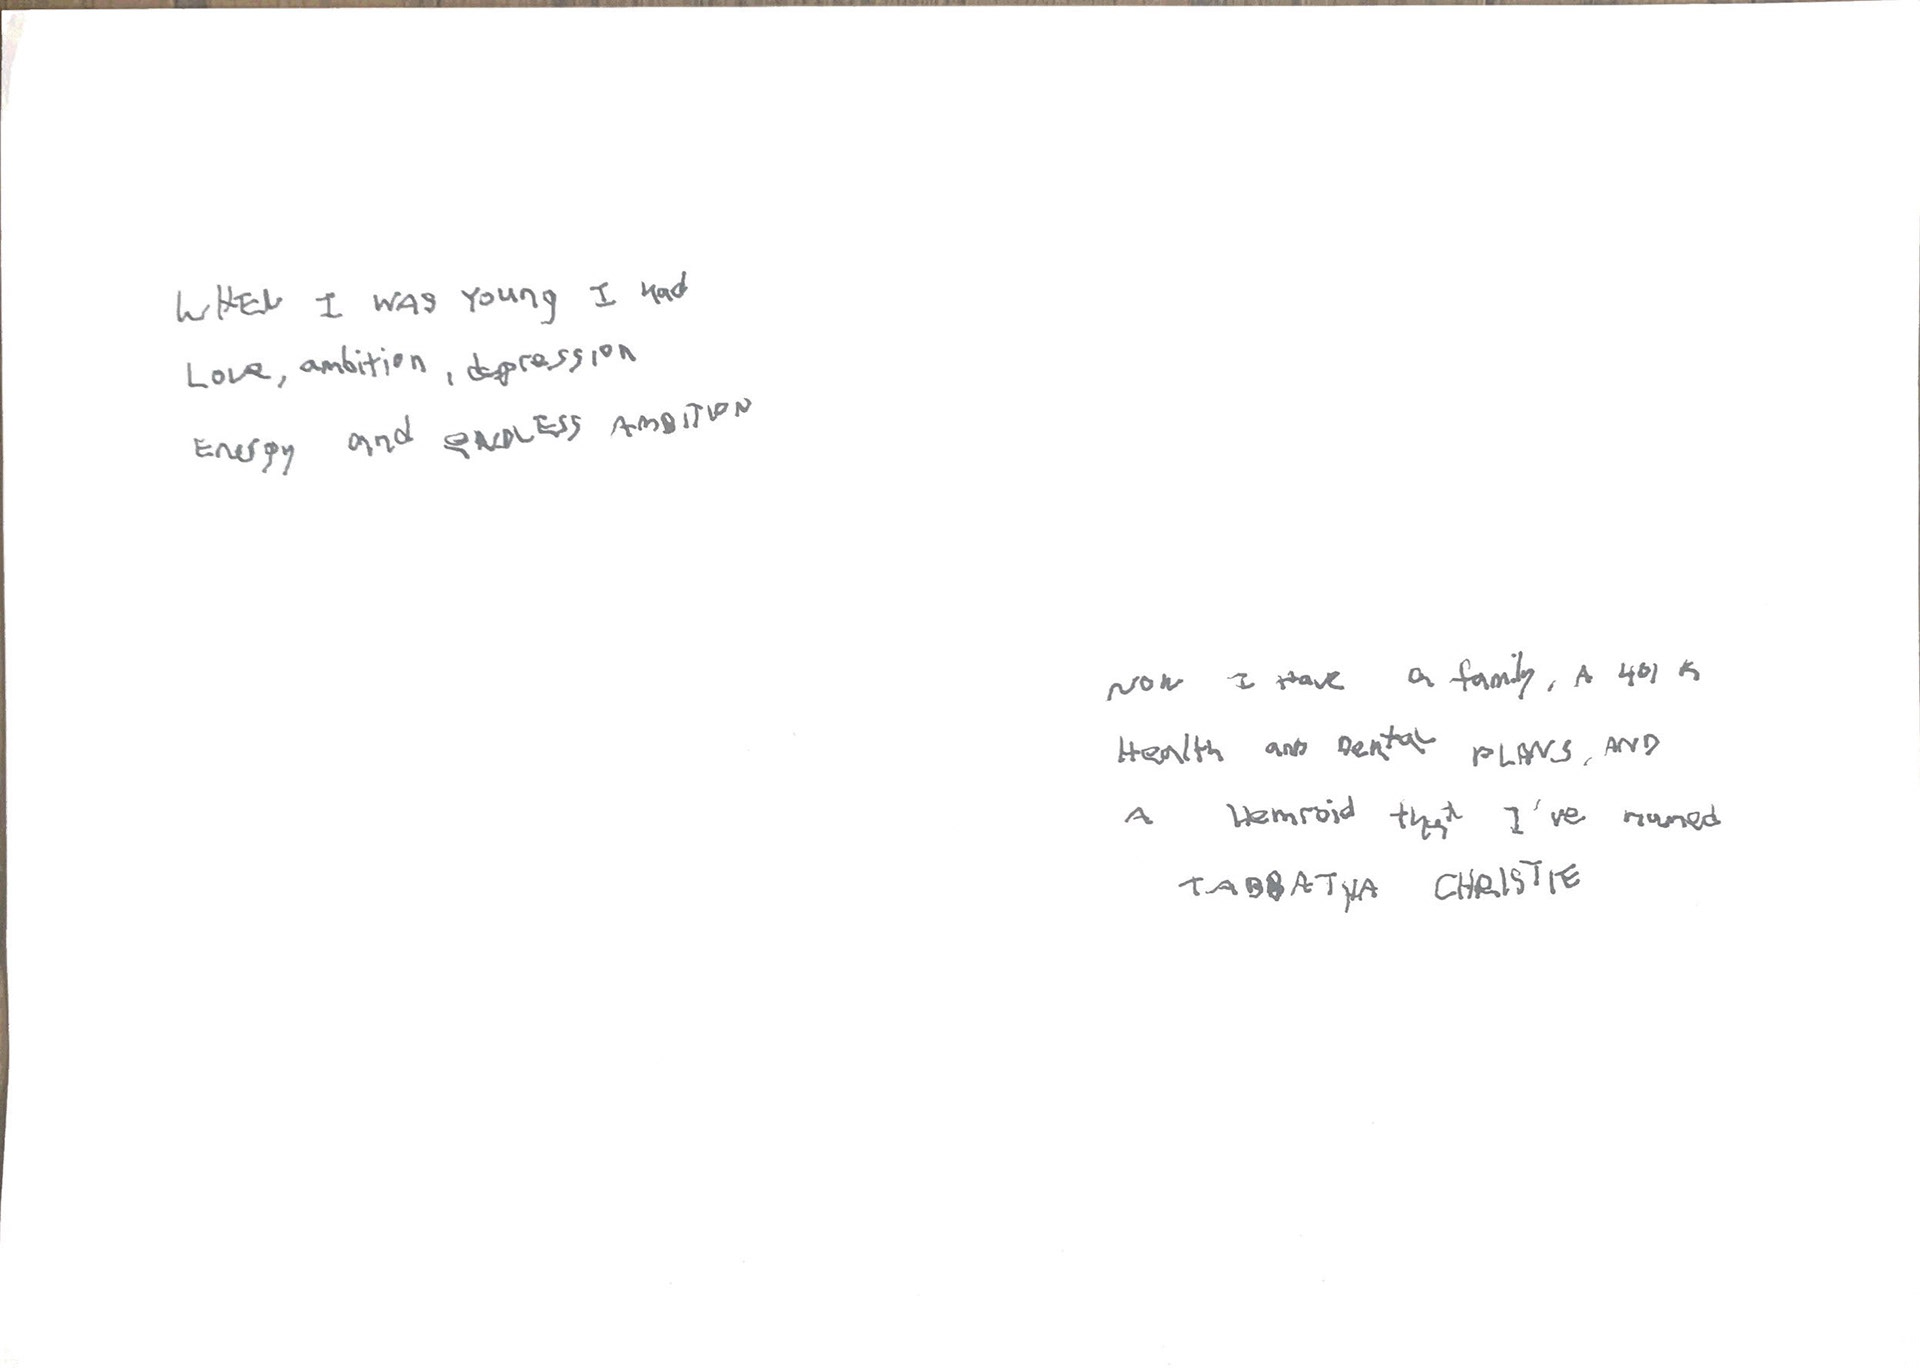 WHEN I WAS Young I Had
Love, ambition, depression
Energy and ENDLESS AMBITION
NOW I Have a family, A 401 K
Health and Dental PLANS, AND
A Hemroid that I've named
TABBATHA CHRISTIE